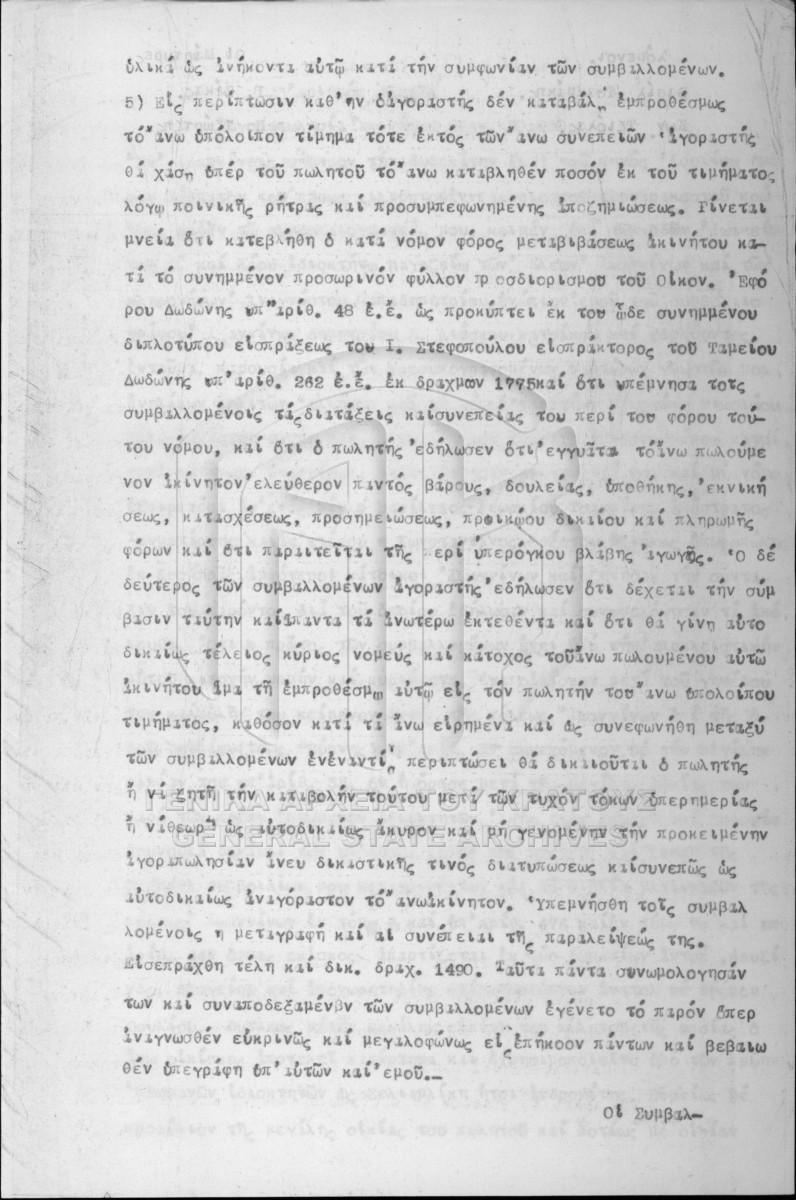 ὑλικά ὡς ἀνήκοντα αὐτῷ κατά τήν συμφωνίαν τῶν συμβαλλομένων.
5) Εἰς περίπτωσιν καθ'ην ὁἀγοραστής δέν καταβάλῃ ἐμπροθέσμως
τό ἄνω ὑπόλοιπον τίμημα τότε ἐκτός τῶν ἄνω συνεπειῶν ἀγοραστής
θά χάσῃ ὑπέρ τοῦ πωλητοῦ τό ἄνω καταβληθέν ποσόν ἐκ τοῦ τιμήματος
λόγῳ ποινικῆς ρήτρας καί προσυμπεφωνημένης ἀποζημιώσεως. Γίνεται
μνεία ὅτι κατεβλήθη ὁ κατά νόμον φόρος μεταβιβάσεως ἀκινήτου κα-
τά τό συνημμένον προσωρινόν φύλλον προσδιορισμου τοῦ Οἰκον. Ἐφό
ρου Δωδώνης ὑπ'ἀριθ. 48 ἐ.ἔ. ὡς προκύπτει ἐκ του ᾧδε συνημμένου
διπλοτύπου εἰσπράξεως του Ι. Στεφοπούλου εἰσπράκτορος τοῦ Ταμείου
Δωδώνης ὑπ'ἀριθ. 262 ἐ.ἔ. ἐκ δραχμων 1775καί ὅτι ὑπέμνησα τοῖς
συμβαλλομένοις τάςδιατάξεις καίσυνεπείας του περί του φόρου τού-
του νόμου, καί ὅτι ὁ πωλητής ἐδήλωσεν ὅτι ἐγγυᾶται τόἄνω πωλούμε
νον ἀκίνητον ἐλεύθερον παντός βάρους, δουλείας, ὑποθήκης, ἐκνική
σεως, κατασχέσεως, προσημειώσεως, προικῴου δικαίου καί πληρωμῆς
φόρων καί ὅτι παραιτεῖται τῆς περί ὑπερόγκου βλάβης ἀγωγῆς. Ὁ δέ
δεύτερος τῶν συμβαλλομένων ἀγοραστής ἐδήλωσεν ὅτι δέχεται τήν σύμ
βασιν ταύτην καίἅπαντα τά ἀνωτέρω ἐκτεθέντα καί ὅτι θά γίνῃ αὐτο
δικαίως τέλειος κύριος νομεύς καί κάτοχος τοῦἄνω πωλουμένου αὐτῶ
ἀκινήτου ἅμα τῇ ἐμπροθέσμῳ αὐτῷ εἰς τόν πωλητήν του ἄνω ὑπολοίπου
τιμήματος, καθόσον κατά τά ἄνω εἰρημένα καί ὡς συνεφωνήθη μεταξύ
τῶν συμβαλλομένων ἐνἐναντίᾳ περιπτώσει θά δικαιοῦται ὁ πωλητής
ἤ νά ζητῇ τήν καταβολήν τούτου μετά τῶν τυχόν τόκων ὑπερημερίας
ἤ νάθεωρῇ ὡς αὐτοδικαίως ἄκυρον καί μή γενομένην τήν προκειμένην
ἀγοραπωλησίαν ἄνευ δικαστικῆς τινός διατυπώσεως καίσυνεπῶς ὡς
αὐτοδικαίως ἀναγόραστον τό ἄνωἀκίνητον. Ὑπεμνήσθη τοῖς συμβαλ
λομένοις η μεταγραφή καί αἱ συνέπειαι τῆς παραλείψεώς της.
Εἰσεπράχθη τέλη καί δικ. δραχ. 1490. Ταῦτα πάντα συνωμολογησάν
των καί συναποδεξαμένων τῶν συμβαλλομένων ἐγένετο τό παρόν ὅπερ
ἀναγνωσθέν εὐκρινῶς καί μεγαλοφώνως εἰς ἐπήκοον πάντων καί βεβαιω
θέν ὑπεγράφη ὑπ'αὐτῶν καί ἐμοῦ.-
Οἱ Συμβαλ-
ΓΕΝΙΚΑ ΑΡΧΕΙΑ ΤΟΥ ΚΡΑΤΟΥΣ
GENERAL STATE ARCHIVES